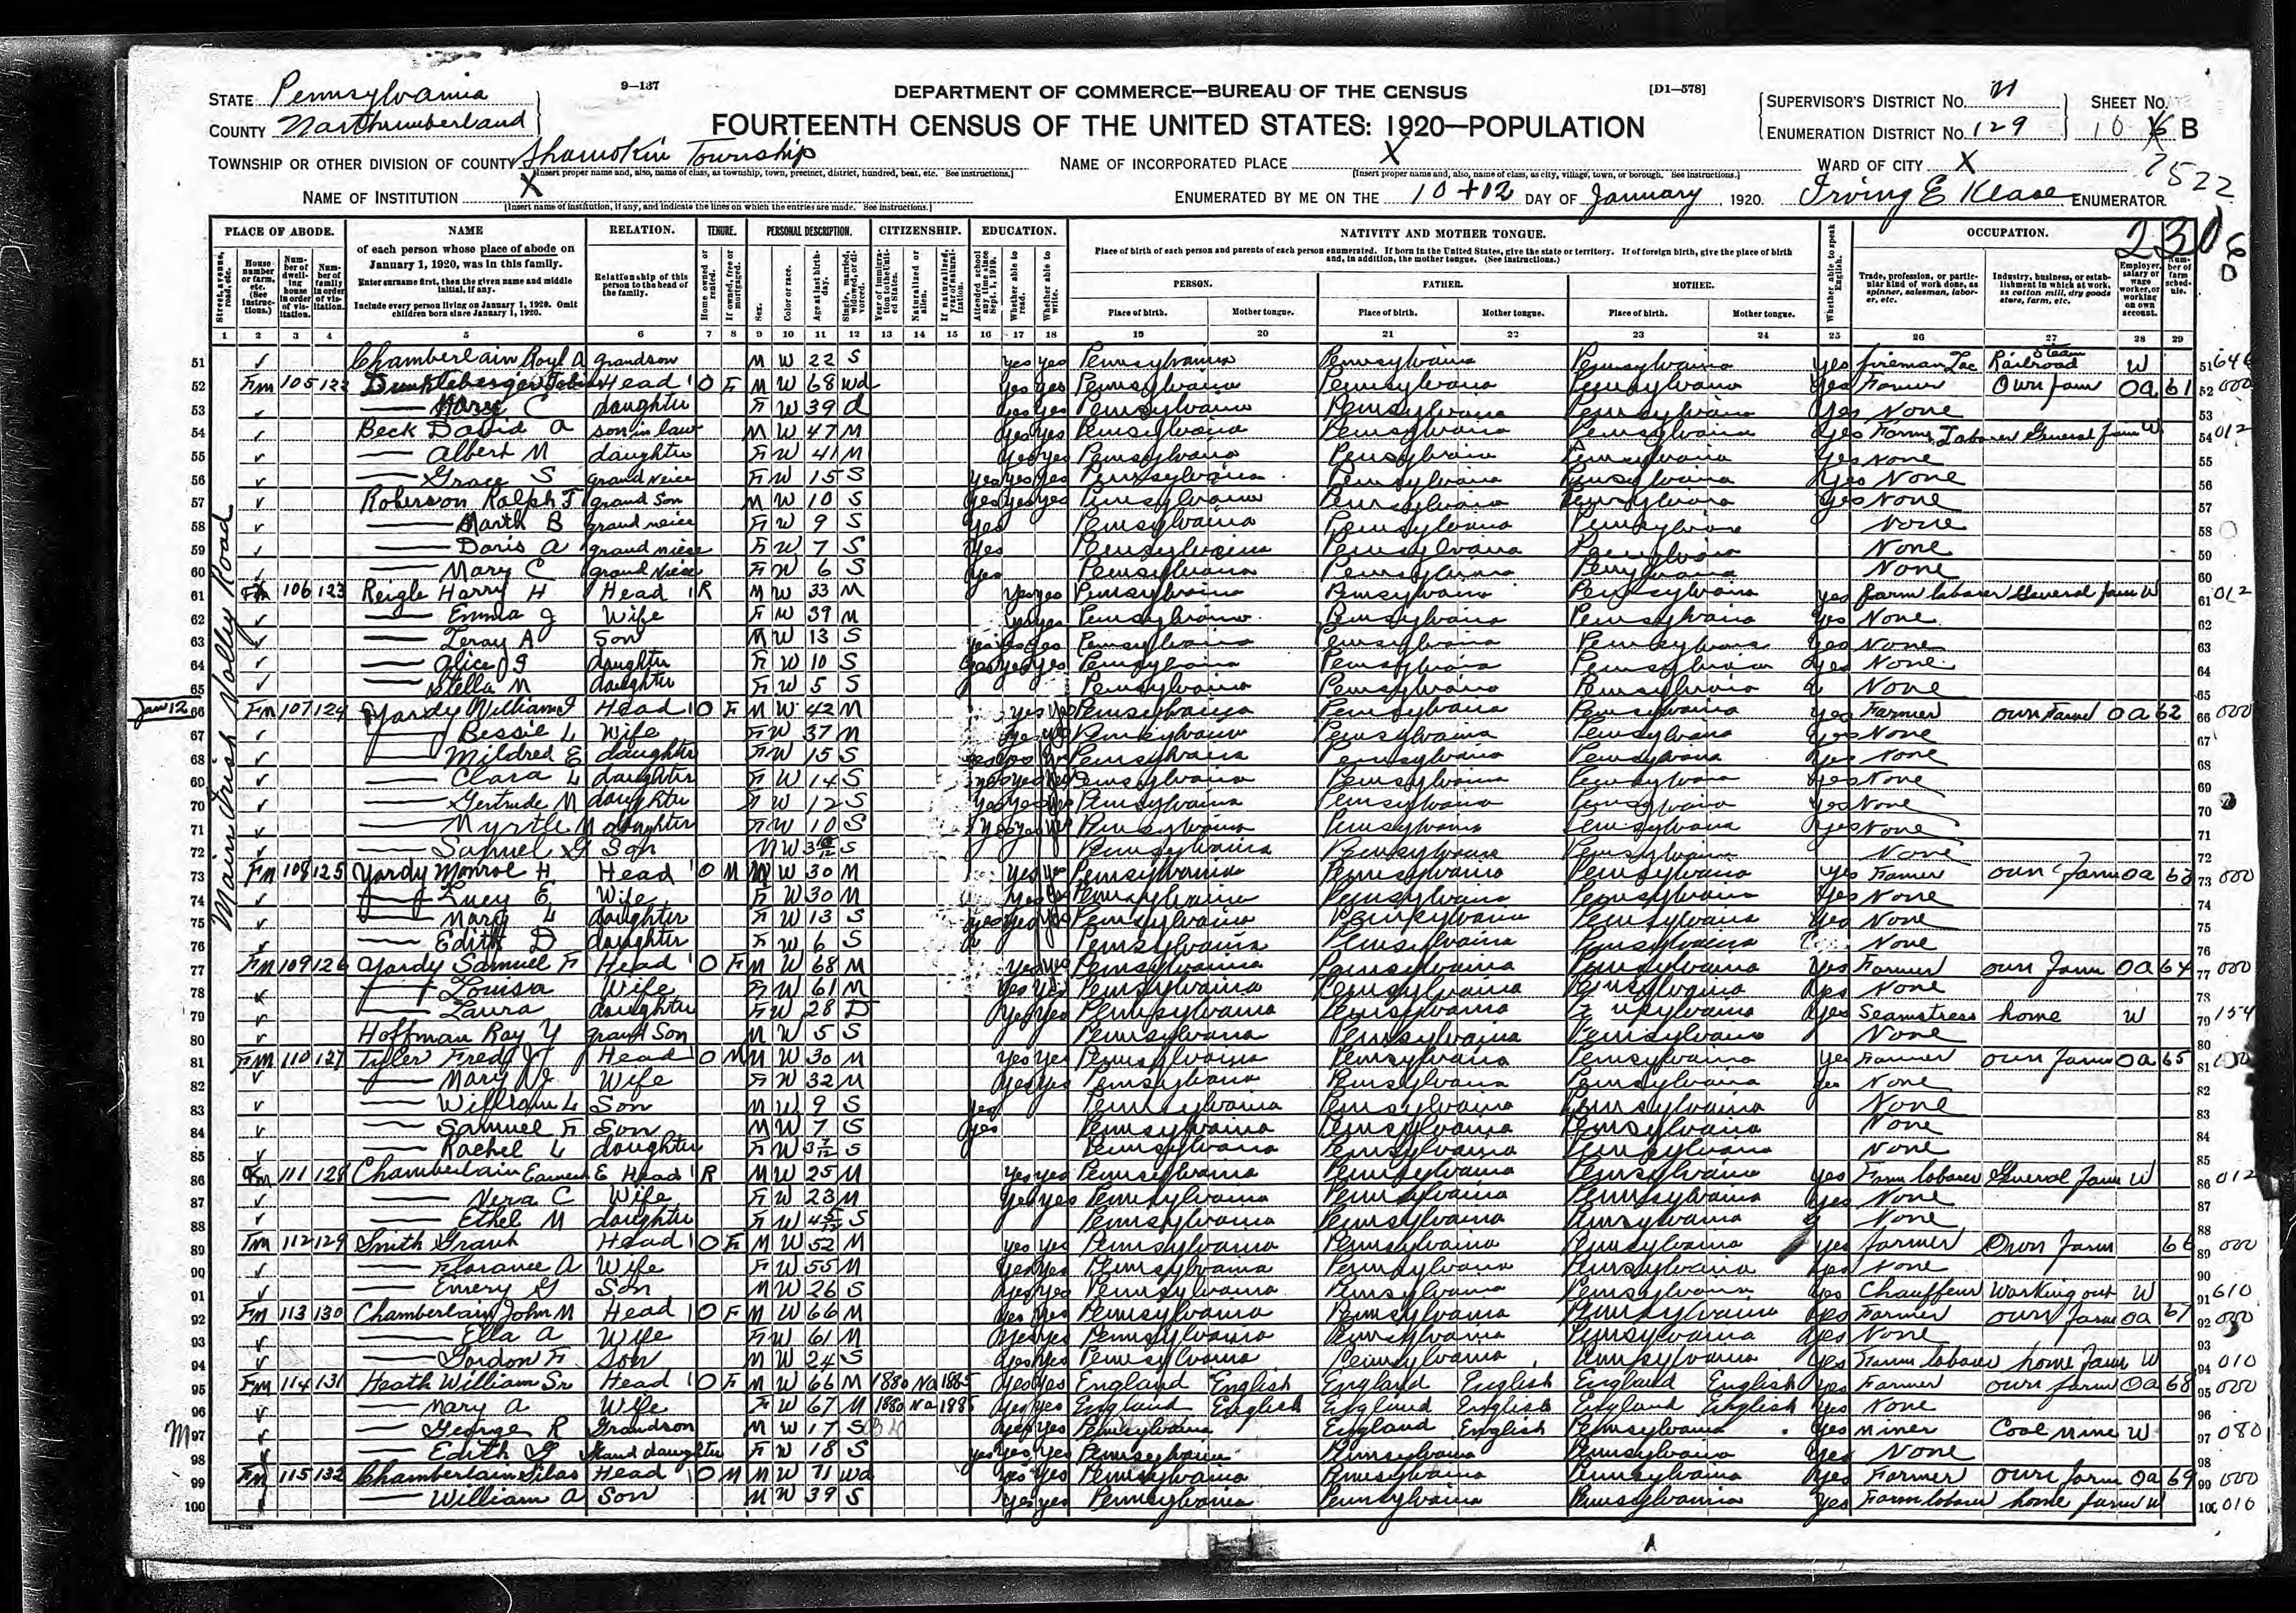 9—137
DEPARTMENT OF COMMERCE—BUREAU OF THE CENSUS
[D1—578]
STATE Pennsylvania
COUNTY Northumberland
FOURTEENTH CENSUS OF THE UNITED STATES: 1920—POPULATION
SUPERVISOR'S DISTRICT No.
ENUMERATION DISTRICT No. 129
SHEET No.
10 B
TOWNSHIP OR OTHER DIVISION OF COUNTY Shamokin Township
[Insert proper name and, also, name of class, as township, town, precinct, district, hundred, beat, etc. See instructions.]
NAME OF INCORPORATED PLACE X
[Insert proper name and, also, name of class, as city, village, town, or borough. See instructions.]
WARD OF CITY X
2522
NAME OF INSTITUTION X
[Insert name of institution, if any, and indicate the lines on which the entries are made. See instructions.]
ENUMERATED BY ME ON THE 10+12 DAY OF January, 1920. Irving E Klase ENUMERATOR
PLACE OF ABODE. NAME RELATION. TENURE. PERSONAL DESCRIPTION. CITIZENSHIP. EDUCATION. NATIVITY AND MOTHER TONGUE. OCCUPATION.
of each person whose place of abode on January 1, 1920, was in this family.
Enter surname first, then the given name and middle initial, if any.
Include every person living on January 1, 1920. Omit children born since January 1, 1920.
Relationship of this person to the head of the family.
Place of birth of each person and parents of each person enumerated. If born in the United States, give the state or territory. If of foreign birth, give the place of birth and, in addition, the mother tongue. (See instructions.)
PERSON. FATHER. MOTHER.
Place of birth. Mother tongue. Place of birth. Mother tongue. Place of birth. Mother tongue.
Trade, profession, or particular kind of work done, as spinner, salesman, laborer, etc.
Industry, business, or establishment in which at work, as cotton mill, dry goods store, farm, etc.
Employer, salary or wage worker, or working on own account.
1 2 3 4 5 6 7 8 9 10 11 12 13 14 15 16 17 18 19 20 21 22 23 24 25 26 27 28 29
Main Irish Valley Road
51 Chamberlain Royl A grandson M W 22 S yes yes Pennsylvania Pennsylvania Pennsylvania yes fireman Loc Steam Railroad W
52 Fm 105 122 Head O F M W 68 wd yes yes Pennsylvania Pennsylvania Pennsylvania yes Farmer Own farm OA 61 000
53 — Mary C daughter F W 39 d yes yes Pennsylvania Pennsylvania Pennsylvania yes None
54 Beck David A son in law M W 47 M yes yes Pennsylvania Pennsylvania Pennsylvania yes Farm Laborer General farm W 012
55 — Albert M daughter F W 41 M yes yes Pennsylvania Pennsylvania Pennsylvania yes None
56 — Grace S grand neice F W 15 S yes yes yes Pennsylvania Pennsylvania Pennsylvania yes None
57 Roberson Ralph F grand Son M W 10 S yes yes yes Pennsylvania Pennsylvania Pennsylvania yes None
58 — Marth B grand neice F W 9 S yes Pennsylvania Pennsylvania Pennsylvania None
59 — Doris A grand niece F W 7 S yes Pennsylvania Pennsylvania Pennsylvania None
60 — Mary C grand Niece F W 6 S yes Pennsylvania Pennsylvania Pennsylvania None
61 Fm 106 123 Reigle Harry H Head R M W 33 M yes yes Pennsylvania Pennsylvania Pennsylvania yes farm laborer General farm W 012
62 — Emma J Wife F W 39 M yes yes Pennsylvania Pennsylvania Pennsylvania yes None
63 — Leray A Son M W 13 S yes yes yes Pennsylvania Pennsylvania Pennsylvania yes None
64 — Alice J daughter F W 10 S yes yes yes Pennsylvania Pennsylvania Pennsylvania yes None
65 — Stella M daughter F W 5 S Pennsylvania Pennsylvania Pennsylvania None
Jan 12 66 Fm 107 124 Yordy William I Head O F M W 42 M yes yes Pennsylvania Pennsylvania Pennsylvania yes Farmer own Farm OA 62 000
67 — Bessie L Wife F W 37 M yes yes Pennsylvania Pennsylvania Pennsylvania yes None
68 — Mildred E daughter F W 15 S yes yes yes Pennsylvania Pennsylvania Pennsylvania yes None
69 — Clara L daughter F W 14 S yes yes yes Pennsylvania Pennsylvania Pennsylvania yes None
70 — Gertrude M daughter F W 12 S yes yes yes Pennsylvania Pennsylvania Pennsylvania yes None
71 — Myrtle M daughter F W 10 S yes yes yes Pennsylvania Pennsylvania Pennsylvania yes None
72 — Samuel G Son M W S Pennsylvania Pennsylvania Pennsylvania None
73 Fm 108 125 Yordy Monroe H Head O M M W 30 M yes yes Pennsylvania Pennsylvania Pennsylvania yes Farmer own Farm OA 63 000
74 — Lucy E Wife F W 30 M yes yes Pennsylvania Pennsylvania Pennsylvania yes None
75 — Mary L daughter F W 13 S yes yes yes Pennsylvania Pennsylvania Pennsylvania yes None
76 — Edith D daughter F W 6 S Pennsylvania Pennsylvania Pennsylvania None
77 Fm 109 126 Yordy Samuel F Head O F M W 68 M yes yes Pennsylvania Pennsylvania Pennsylvania yes Farmer own farm OA 64 000
78 — Louisa Wife F W 61 M yes yes Pennsylvania Pennsylvania Pennsylvania yes None
79 — Laura daughter F W 28 D yes yes Pennsylvania Pennsylvania Pennsylvania yes Seamstress home W 154
80 Hoffman Ray Y grand Son M W 5 S Pennsylvania Pennsylvania Pennsylvania None
81 Fm 110 127 Tyler Fred J Head O M M W 30 M yes yes Pennsylvania Pennsylvania Pennsylvania yes Farmer own farm OA 65 000
82 — Mary J Wife F W 32 M yes yes Pennsylvania Pennsylvania Pennsylvania yes None
83 — William L Son M W 9 S yes Pennsylvania Pennsylvania Pennsylvania None
84 — Samuel F Son M W 7 S yes Pennsylvania Pennsylvania Pennsylvania None
85 — Rachel L daughter F W 3 7/12 S Pennsylvania Pennsylvania Pennsylvania None
86 Fm 111 128 Chamberlain E Head R M W 25 M yes yes Pennsylvania Pennsylvania Pennsylvania yes Farm laborer General farm W 012
87 — Nera C Wife F W 23 M yes yes Pennsylvania Pennsylvania Pennsylvania yes None
88 — Ethel M daughter F W 4 5/12 S Pennsylvania Pennsylvania Pennsylvania None
89 Fm 112 129 Smith Grant Head O F M W 52 M yes yes Pennsylvania Pennsylvania Pennsylvania yes farmer Own farm 66 000
90 — Florance A Wife F W 55 M yes yes Pennsylvania Pennsylvania Pennsylvania yes None
91 — Emery G Son M W 26 S yes yes Pennsylvania Pennsylvania Pennsylvania yes Chauffeur Working out W 610
92 Fm 113 130 Chamberlain John M Head O F M W 66 M yes yes Pennsylvania Pennsylvania Pennsylvania yes Farmer own farm OA 67 000
93 — Ella A Wife F W 61 M yes yes Pennsylvania Pennsylvania Pennsylvania yes None
94 — Gordon F Son M W 24 S yes yes Pennsylvania Pennsylvania Pennsylvania yes Farm laborer home farm W 010
95 Fm 114 131 Heath William Sr Head O F M W 66 M 1880 Na 1885 yes yes England English England English England English yes Farmer own farm OA 68 000
96 — Mary A Wife F W 67 M 1880 Na 1885 yes yes England English England English England English yes None
97 — George R Grandson M W 17 S yes yes Pennsylvania England English Pennsylvania yes miner Coal mine W 080
98 — Edith G Grand daughter F W 18 S yes yes yes Pennsylvania Pennsylvania Pennsylvania yes None
99 Fm 115 132 Chamberlain Silas Head O M M W 71 wd yes yes Pennsylvania Pennsylvania Pennsylvania yes Farmer own farm OA 69 000
100 — William A Son M W 39 S yes yes Pennsylvania Pennsylvania Pennsylvania yes Farm laborer home farm W 010